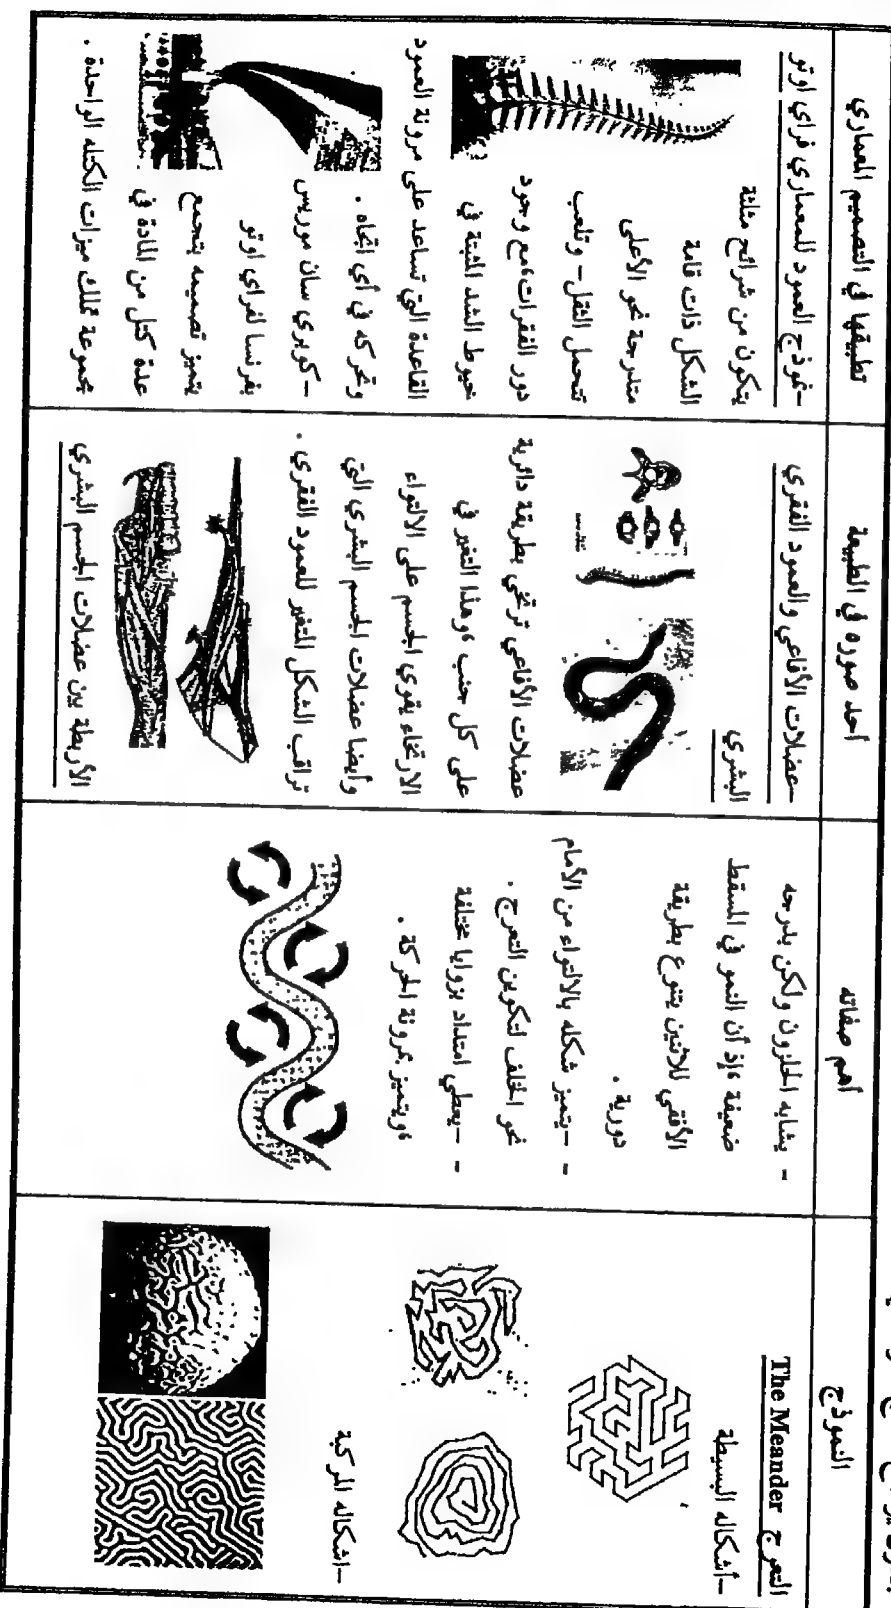 النموذج
أهم صفاته
أحد صوره في الطبيعة
تطبيقها في التصميم المعماري
التعرج The Meander
-أشكاله البسيطة
-اشكاله المركبة
- يشابه الحلزون ولكن بدرجه
ضعيفة ،إذ أن النمو في المسقط
الأفقي للاثنين يتنوع بطريقة
دورية .
- -يتميز شكله بالالتواء من الأمام
نحو الخلف لتكوين التعرج .
- -يعطي امتداد بزوايا مختلفة
،ويتميز بمرونة الحركة .
-عضلات الأفاعي والعمود الفقري
البشري
عضلات الأفاعي ترتخي بطريقة دائرية
على كل جنب ،وهذا التغير في
الارتخاء يقوي الجسم على الالتواء
وأيضا عضلات الجسم البشري التي
تراقب الشكل المتغير للعمود الفقري .
الأربطة بين عضلات الجسم البشري
-نموذج العمود للمعماري فراي اوتو
يتكون من شرائح مثلثة
الشكل ذات قامة
متدرجة نحو الأعلى
تتحمل الثقل- وتلعب
دور الفقرات،مع وجود
خيوط الشد المثبتة في
القاعدة التي تساعد على مرونة العمود
وتحركه في أي اتجاه .
-كوبري سان موريس
بفرنسا لفراي اوتو
يتميز تصميمه بتجمع
عدة كتل من المادة في
مجموعة تملك ميزات الكتله الواحدة .